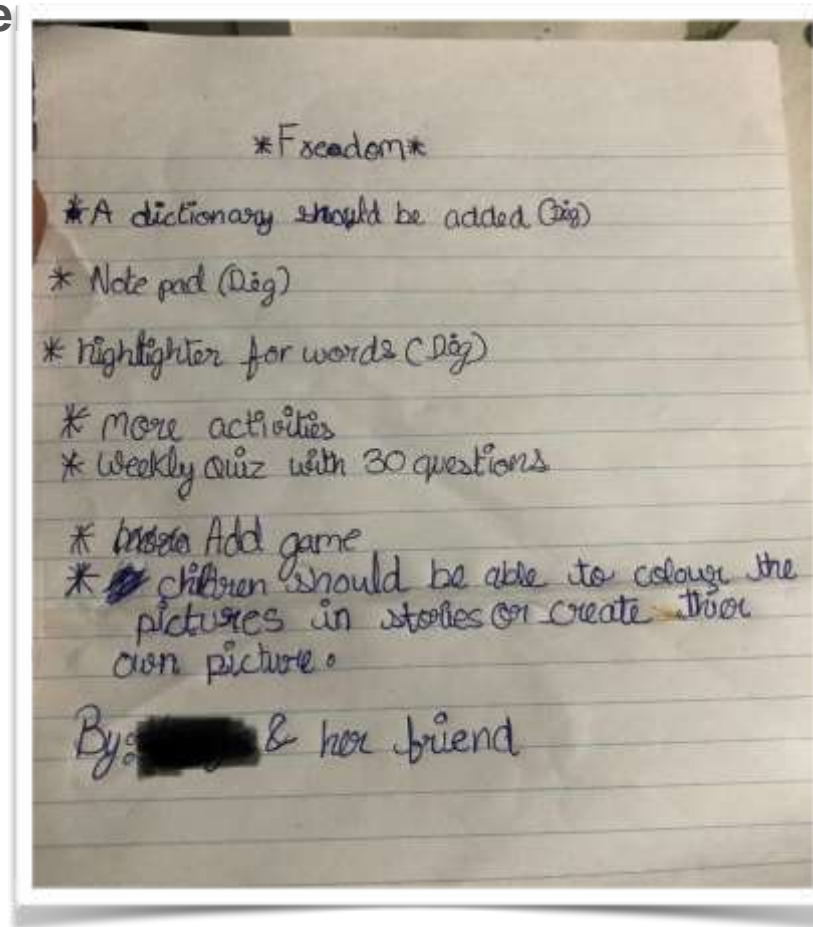 e
*Freedom*
*A dictionary should be added (Dig)
* Note pad (Dig)
* highlighter for words (Dig)
* more activities
* Weekly quiz with 30 questions
* Add game
* children should be able to colour the
pictures in stories or create thier
own picture.
By: & her friend